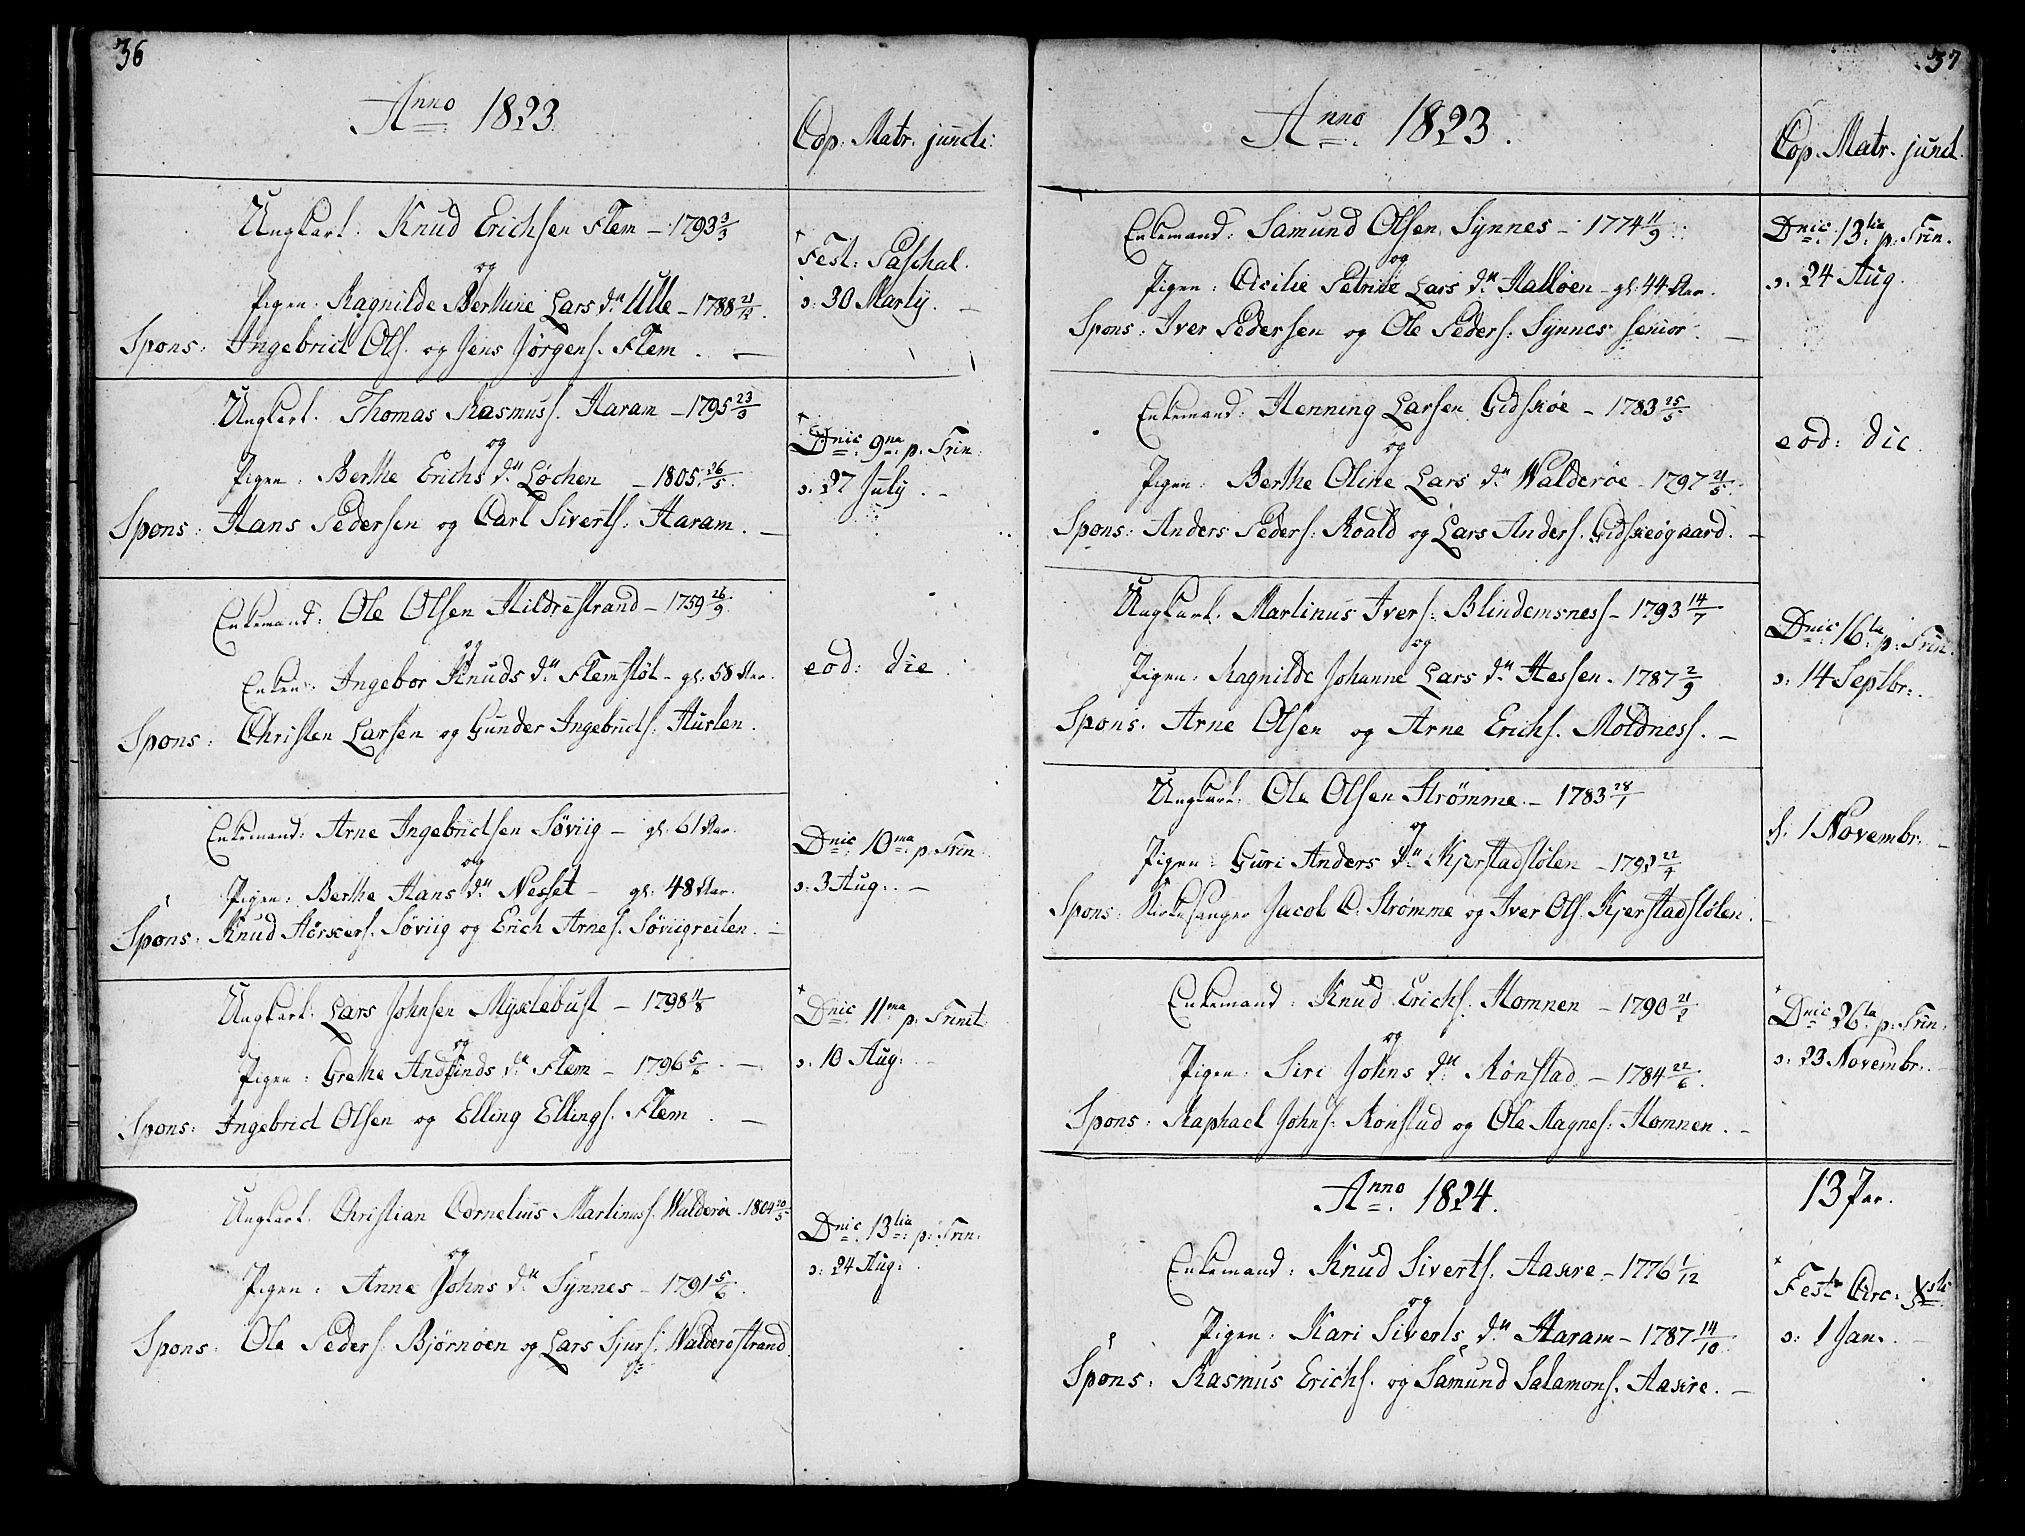 36
Anno 1823.
Cop: Matr. juncti:
Ungkarl: Knud Erichsen Flem – 1793 3/3
og
Pigen: Ragnilde Berthine Lars dtr Ulle – 1788 21/12
Spons: Ingebrict Ols. og Jens Jørgens. Flem. —
Fest: Paschal.
ɔ: 30 Martij. –
Ungkarl. Thomas Rasmuss. Haram – 1795 23/3
og
Pigen: Berthe Erichs dtr Løchen – 1805 26/5.
Spons: Hans Pedersen og Carl Siverts: Haram. —
Dnic: 9na p: Trin:
ɔ: 27 Julij. –
Enkemand: Ole Olsen Hildrestrand – 1759 26/9.
og
Enken: Ingebor Knuds dtr Flemstøl – gl: 58 Aar.
Spons: Christen Larsen og Gunder Ingebricts: Huslen.
eod: die.
Enkemand: Arne Ingebrictsen Søviig – gl: 61 Aar.
og
Pigen: Berthe Hans dtr Nesset – gl: 48 Aar.
Spons: Knud Hørkers. Søviig og Erich Arnes. Søviigreiten. –
Dnic: 10ma p: Trin:
ɔ: 3 Aug: –
Ungkarl: Lars Johnsen Myklebust – 1798 11/8
og
Pigen: Grethe Andfinds dtr Flem – 1796 5/6. —
Spons: Ingebrict Olsen og Elling Ellings. Flem. —
Dnic: 11ma p: Trinit:
ɔ: 10 Aug: –
Ungkarl. Christian Cornelius Martinuss. Walderøe. 1804 20/5
og
Pigen: Anne Johns dtr Synnes – 1791 5/6.
Spons: Ole Peders: Bjørnøen og Lars Sjurs: Walderøstrand.
Dnic: 13tia p: Trin:
ɔ: 24 Aug:
37
Anno 1823.
Cop. Matr. junct.
Enkemand: Samund Olsen Synnes – 1774 11/9.
og
Pigen: Cicilie Petrine Lars dtr Halløen – gl: 44 Aar.
Spons: Iver Pedersen og Ole Peders: Synnes senior. —
Dnic: 13tia p: Trin.
ɔ: 24 Aug.
Enkemand: Henning Larsen Gidskøe – 1783 25/5
og
Pigen: Berthe Oline Lars dtr Walderøe – 1797 21/5.
Spons: Anders Peders: Roald og Lars Anders. Gidskøgaard. —
eod: die.
Ungkarl. Martinus Ivers: Blindemsness – 1793 14/7
og
Pigen: Ragnilde Johanne Lars dtr Hessen – 1787 2/9
Spons: Arne Olsen og Arne Erichs. Moldness. —
Dnic: 16ta p: Trin.
ɔ: 14 Septbr:
Ungkarl: Ole Olsen Strømme – 1783 28/1
og
Pigen: Guri Anders dtr Kjerstadstølen – 1793 22/4
Spons: Kirkesanger Jacob O. Strømme og Iver Ols. Kjerstadstølen. –
d: 1 Novembr: –
Enkemand: Knud Erichs. Homnen – 1790 21/2
og
Pigen: Siri Johns dtr Rønstad – 1784 22/6.
Spons: Raphael Johns: Rønstad og Ole Magnes: Homnen. –
Dnic: 26ta p: Trin:
ɔ: 23 Novembr:
Anno 1824.
13 Par.
Enkemand: Knud Siverts. Aakre – 1776 1/12
og
Pigen: Kari Siverts dtr Haram – 1787 14/10
Spons: Rasmus Erichs. og Samund Salamons. Aakre. —
Festo Circ: Xsti
ɔ: 1 Jan. –